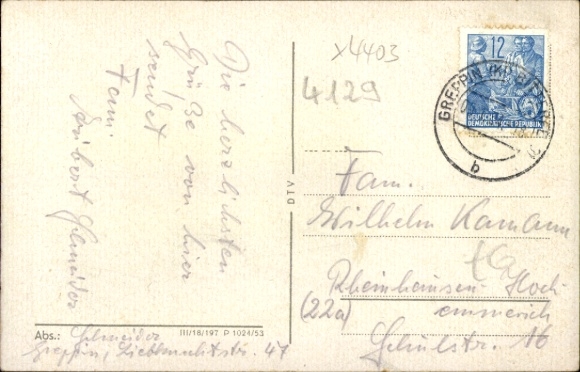 Die herzlichsten
Grüße von hier
sendet
Fam.
Schneider
x4403
4129
12
DEUTSCHE
DEMOKRATISCHE REPUBLIK
GREPPIN
b
DTV
Fam.
Wilhelm Kamann
Rheinhausen-Hoch
(22a) emmerich
Schulstr. 16
III/18/197 P 1024/53
Abs.: Schneider
Greppin, Liebknechtstr. 47